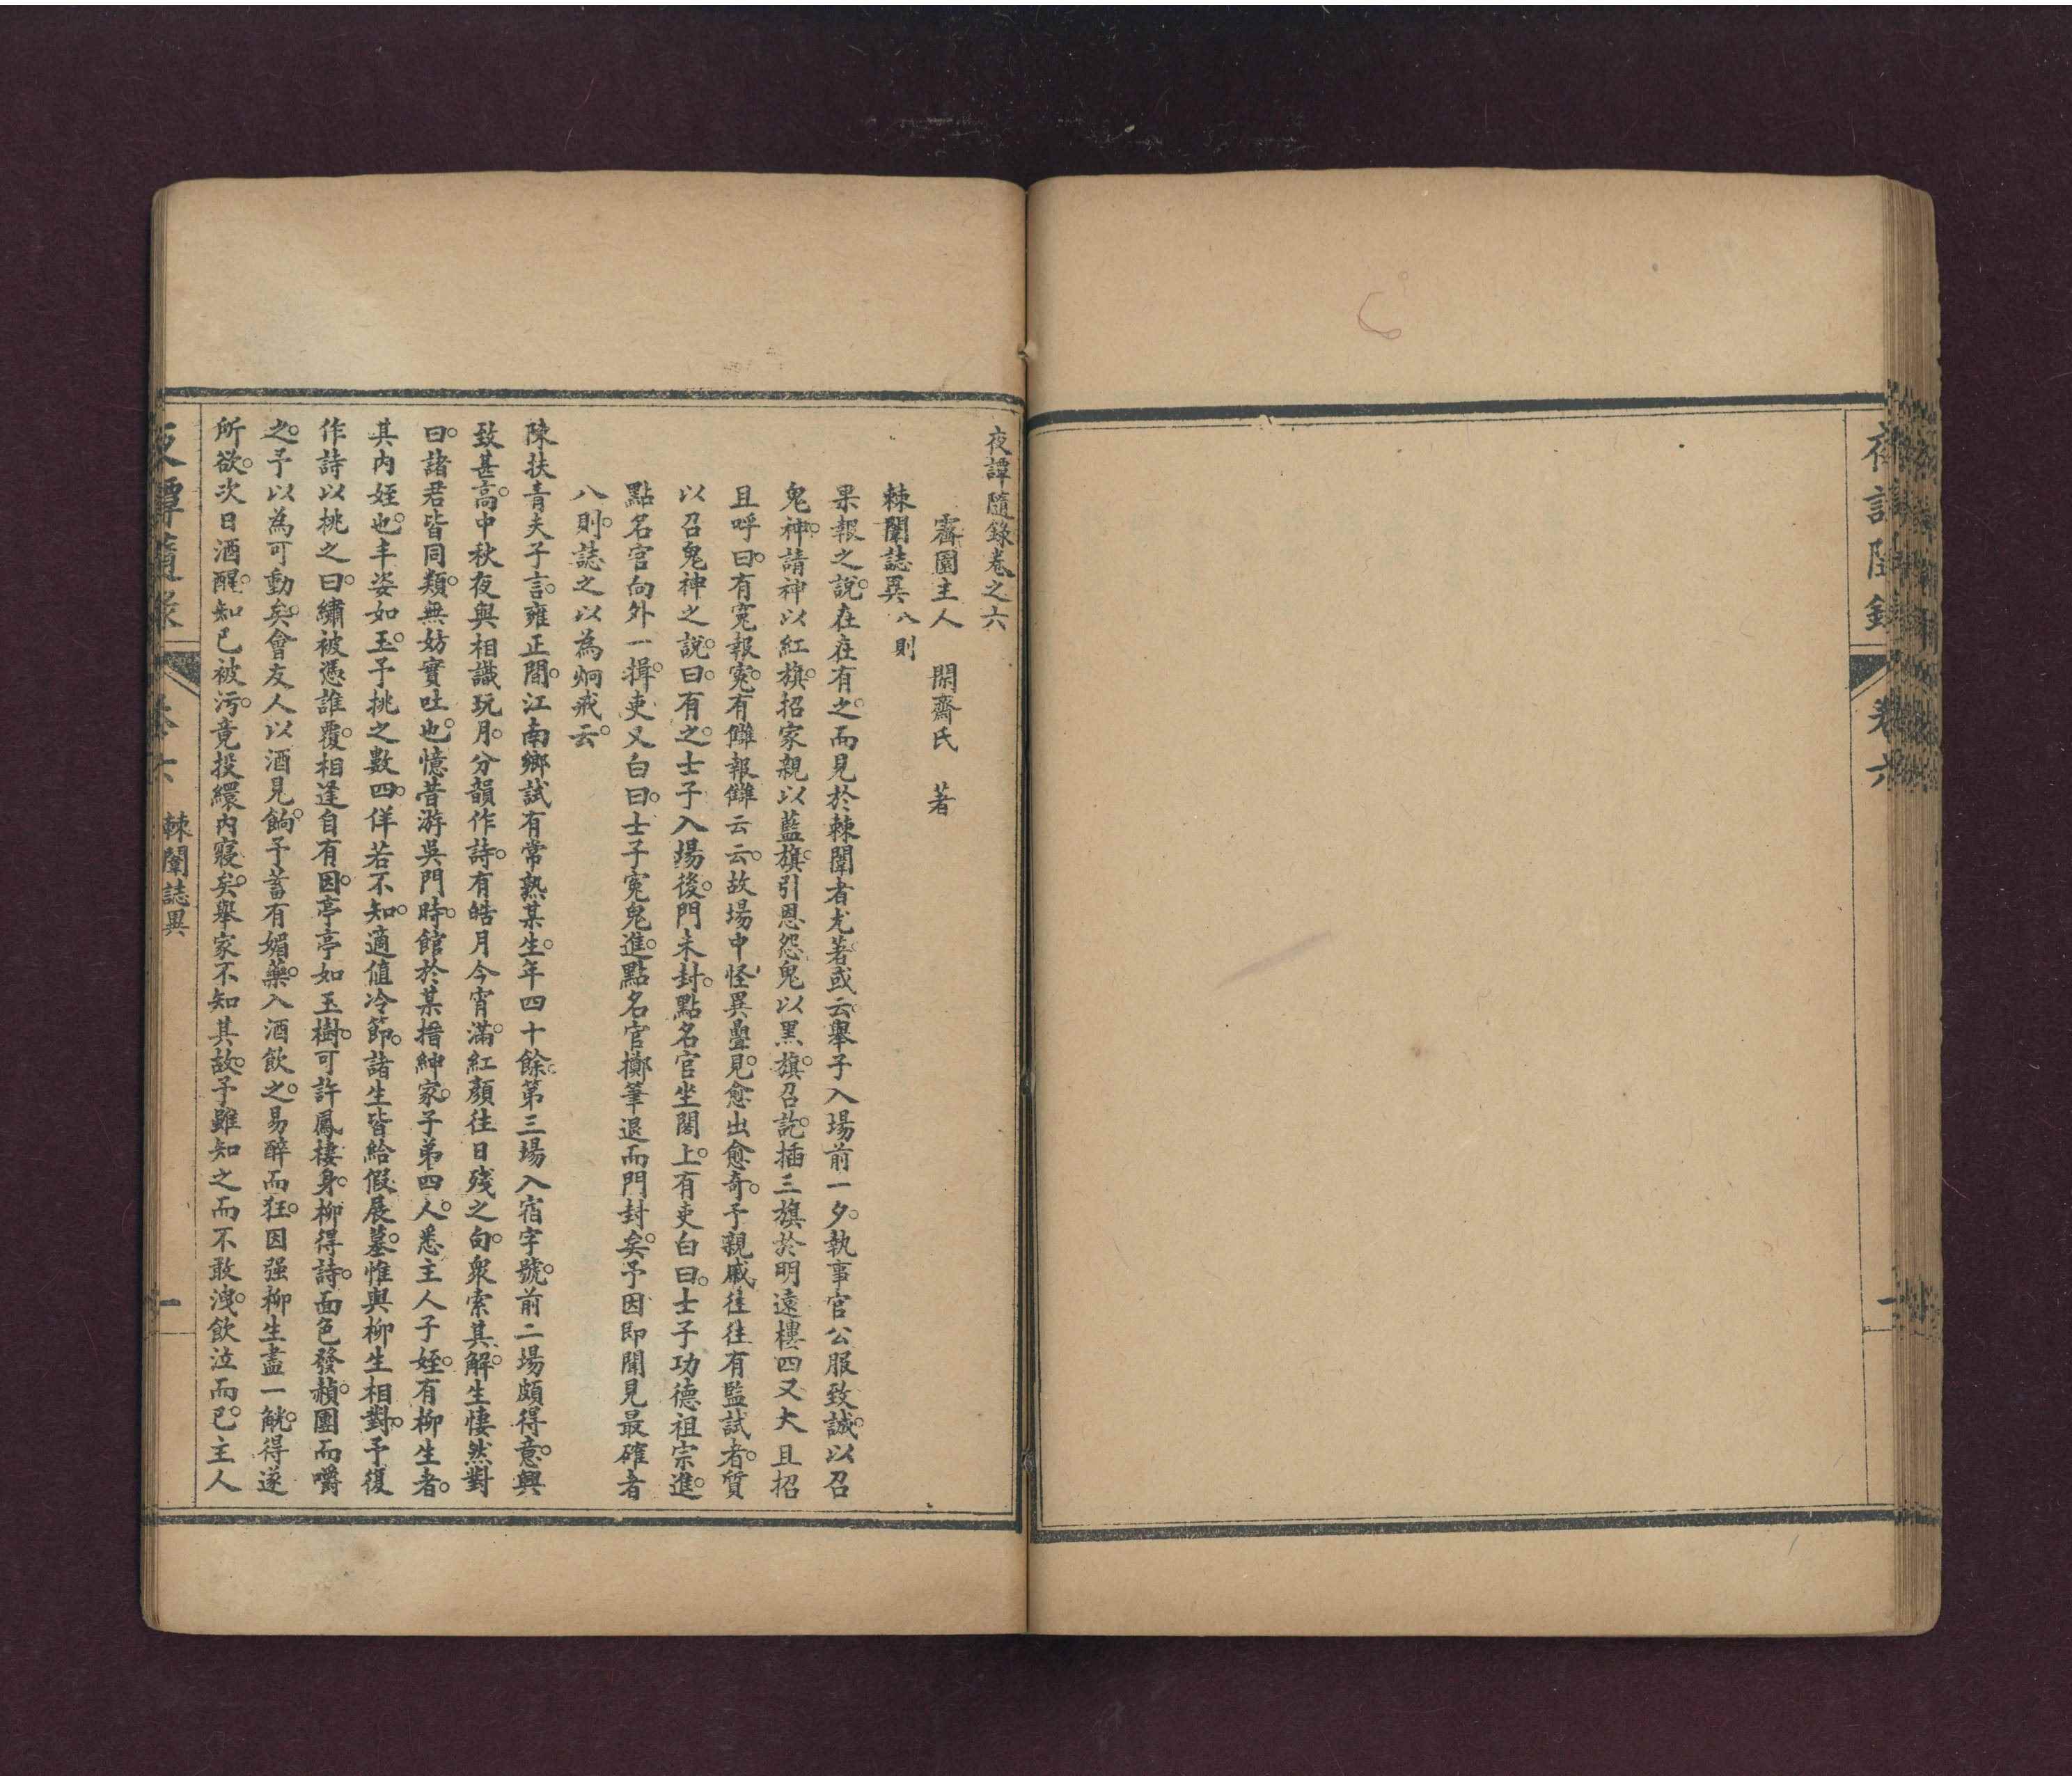 卷六
一
夜譚隨錄卷之六
霽園主人　閑齋氏　著
棘闈誌異八則
果報之說。在在有之。而見於棘闈者尤著。或云。舉子入場前一夕。執事官公服致誠。以召
鬼神。請神以紅旗。招家親以藍旗。引恩怨鬼以黑旗。召訖。插三旗於明遠樓四又大且招
且呼曰。有寃報寃。有讎報讎云云。故場中怪異疊見。愈出愈奇。予親戚往往有監試者。質
以召鬼神之說。曰。有之。士子入場後。門未封。點名官坐閣上。有吏白曰。士子功德祖宗進。
點名官向外一揖。吏又白曰。士子寃鬼進。點名官擲筆退而門封矣。予因即聞見最確者
八則。誌之以為炯戒云。
陳扶青夫子言。雍正間。江南鄉試有常熟某生。年四十餘。第三場入宿字號。前二場頗得意。興
致甚高。中秋夜與相識玩月。分韻作詩。有皓月今宵滿。紅顏往日殘之句。衆索其解。生悽然對
曰。諸君皆同類。無妨實吐也。憶昔游吳門時。館於某搢紳家。子弟四人。悉主人子姪。有柳生者。
其內姪也。丰姿如玉。予挑之數四。佯若不知。適值冷節。諸生皆給假展墓。惟與柳生相對。予復
作詩以挑之曰。繡被憑誰覆。相逢自有因。亭亭如玉樹。可許鳳棲身。柳得詩。面色發赬。團而嚼
之。予以為可動矣。會友人以酒見餉。予蓄有媚藥。入酒飲之。易醉而狂。因强柳生盡一觥。得遂
所欲。次日酒醒。知已被污。竟投繯內寢矣。舉家不知其故。予雖知之而不敢洩。飲泣而已。主人
夜譚隨錄
卷六
棘闈誌異
一